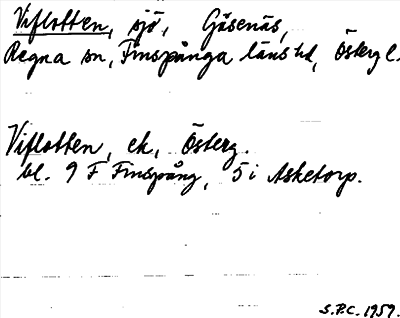 Viflotten, sjö, Gåsenäs,
Regna sn, Finspånga läns hd, Österg l.
Viflotten, ek, Österg.
bl. 9 F Finspång, 5 i Asketorp.
S.P.C. 1959.